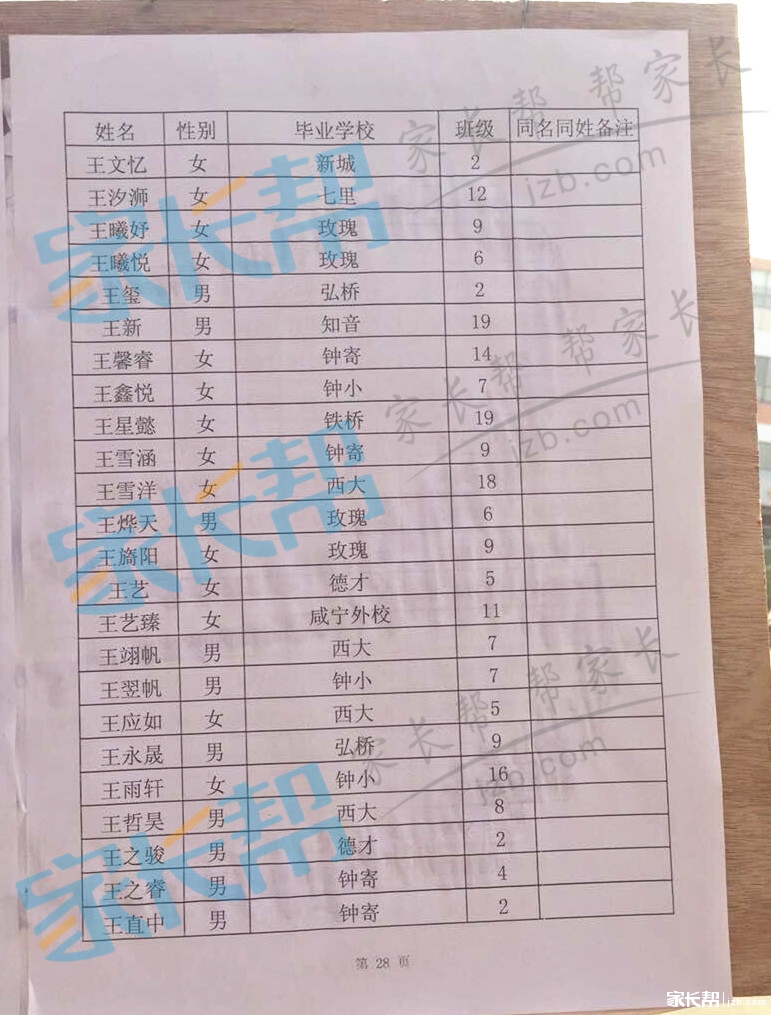 姓名 性别 毕业学校 班级 同名同姓备注
王文忆 女 新城 2
王汐浉 女 七里 12
王曦妤 女 玫瑰 9
王曦悦 女 玫瑰 6
王玺 男 弘桥 2
王新 男 知音 19
王馨睿 女 钟寄 14
王鑫悦 女 钟小 7
王星懿 女 铁桥 19
王雪涵 女 钟寄 9
王雪洋 女 西大 18
王烨天 男 玫瑰 6
王旖阳 女 玫瑰 9
王艺 女 德才 5
王艺臻 女 咸宁外校 11
王翊帆 男 西大 7
王翌帆 男 钟小 7
王应如 女 西大 5
王永晟 男 弘桥 9
王雨轩 女 钟小 16
王哲昊 男 西大 8
王之骏 男 德才 2
王之睿 男 钟寄 4
王直中 男 钟寄 2
第 28 页
家长帮
家长帮
家长帮
家长帮 帮家长
jzb.com
家长帮 帮家长
jzb.com
家长帮 帮家长
jzb.com
家长帮 jzb.com